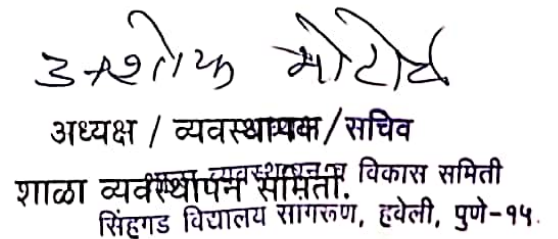 अशोक मोटे
अध्यक्ष / व्यवस्थापक / सचिव
व्यवस्थापन व विकास समिती
शाळा व्यवस्थापन समिती.
सिंहगड विद्यालय सांगरुण, हवेली, पुणे-१५.